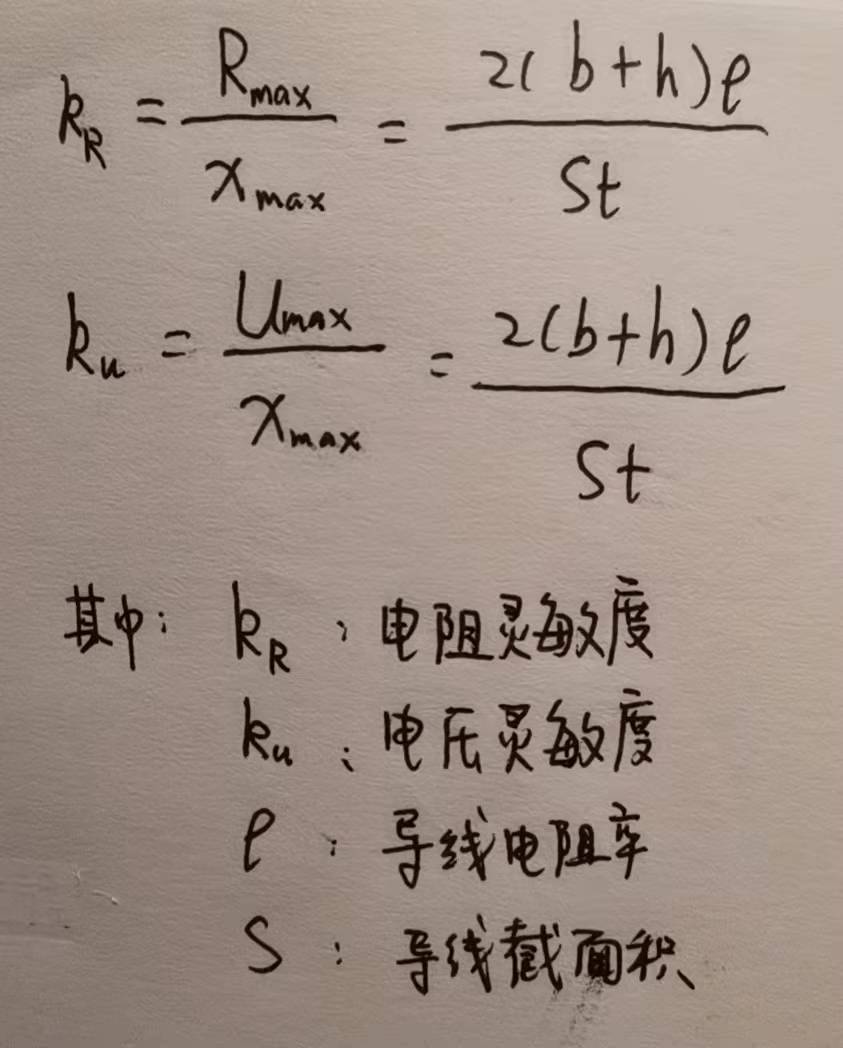 k_R = R_max / x_max = 2(b+h)ρ / St
k_u = U_max / x_max = 2(b+h)ρ / St
其中: k_R : 电阻灵敏度
k_u : 电压灵敏度
ρ : 导线电阻率
S : 导线截面积